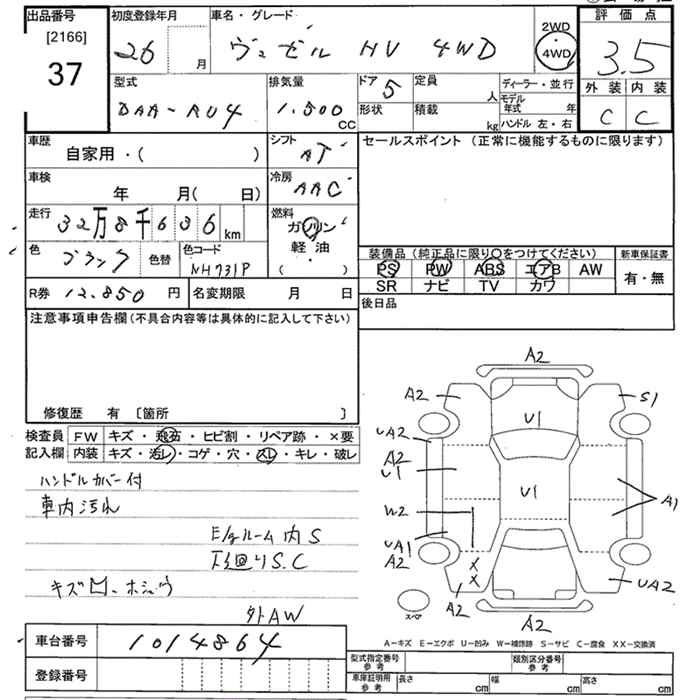 出品番号
[2166]
37
初度登録年月
26
月
車名・グレード
ヴェゼル HV 4WD
2WD
4WD
評価点
3.5
外装 内装
C C
型式
DAA-RU4
排気量
1.500
CC
ドア
5
形状
定員
人
積載
kg
ディーラー・並行
モデル年式
年
ハンドル 左・右
車歴
自家用・( )
シフト
AT
セールスポイント (正常に機能するものに限ります)
車検
年 月( 日)
冷房
AAC
走行
32万8千636km
燃料
ガソリン
軽油
( )
色
ブラック
色替
色コード
NH731P
装備品 (純正品に限り○をつけてください)
PS PW ABS エアB AW
SR ナビ TV カワ
新車保証書
有・無
R券 12.850 円
名変期限 月 日
後日品
注意事項申告欄 (不具合内容等は具体的に記入して下さい)
修復歴 有 〔箇所 〕
検査員記入欄
FW キズ・飛石・ヒビ割・リペア跡・×要
内装 キズ・汚レ・コゲ・穴・スレ・キレ・破レ
ハンドルカバー付
車内汚れ
E/gルーム内S
下廻りS.C
キズ凹、ホシュウ
外AW
A2
A2
S1
U1
UA2
A2
U1
U1
A1
W2
UA1
A2
XX
A2
UA2
A2
スペア
A−キズ E−エクボ U−凹み W−補修跡 S−サビ C−腐食 XX−交換済
車台番号
1014864
登録番号
型式指定番号
参考
類別区分番号
参考
車庫証明用
参考
長さ
cm
幅
cm
高さ
cm